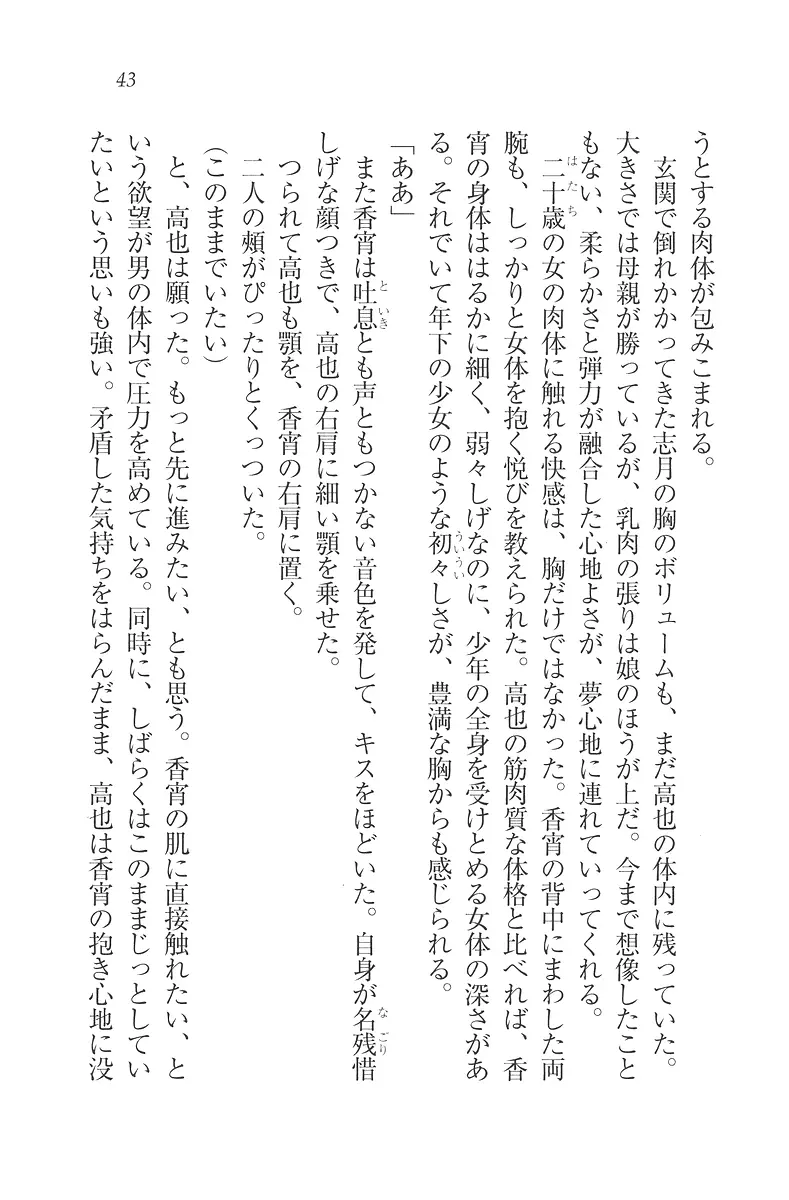 43
うとする肉体が包みこまれる。
玄関で倒れかかってきた志月の胸のボリュームも、まだ高也の体内に残っていた。
大きさでは母親が勝っているが、乳肉の張りは娘のほうが上だ。今まで想像したこと
もない、柔らかさと弾力が融合した心地よさが、夢心地に連れていってくれる。
二十歳の女の肉体に触れる快感は、胸だけではなかった。香宵の背中にまわした両
腕も、しっかりと女体を抱く悦びを教えられた。高也の筋肉質な体格と比べれば、香
宵の身体ははるかに細く、弱々しげなのに、少年の全身を受けとめる女体の深さがあ
る。それでいて年下の少女のような初々しさが、豊満な胸からも感じられる。
「ああ」
また香宵は吐息とも声ともつかない音色を発して、キスをほどいた。自身が名残惜
しげな顔つきで、高也の右肩に細い顎を乗せた。
つられて高也も顎を、香宵の右肩に置く。
二人の頰がぴったりとくっついた。
（このままでいたい）
と、高也は願った。もっと先に進みたい、とも思う。香宵の肌に直接触れたい、と
いう欲望が男の体内で圧力を高めている。同時に、しばらくはこのままじっとしてい
たいという思いも強い。矛盾した気持ちをはらんだまま、高也は香宵の抱き心地に没